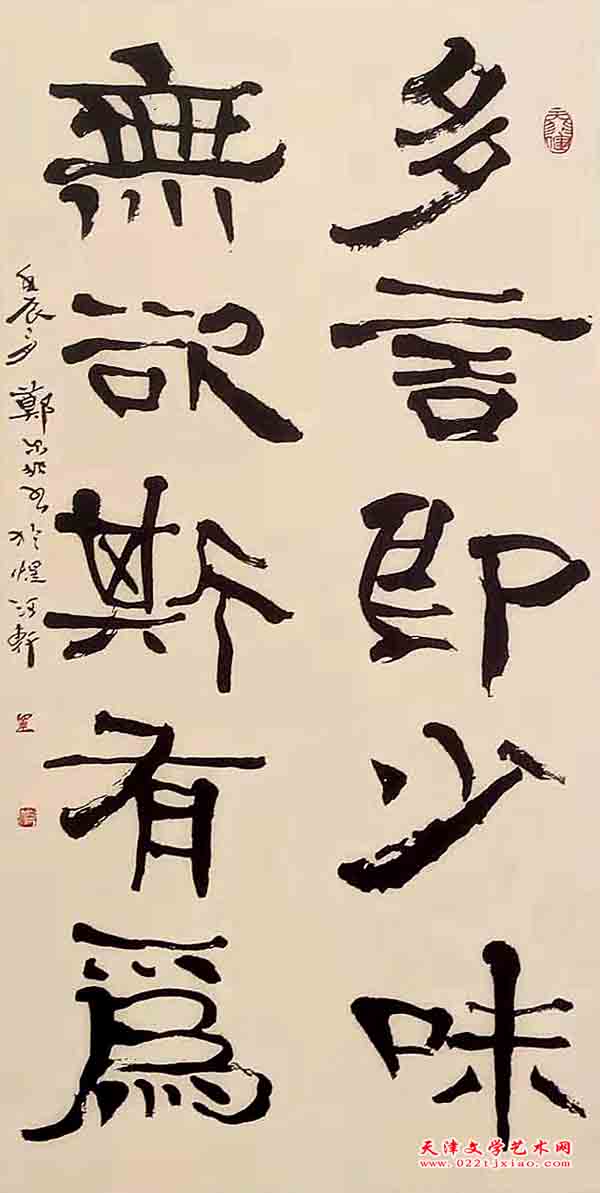 多言即少味
無欲斯有爲
壬辰夕 鄭 於煌 軒
天津文学艺术网
www.022tjxiao.com